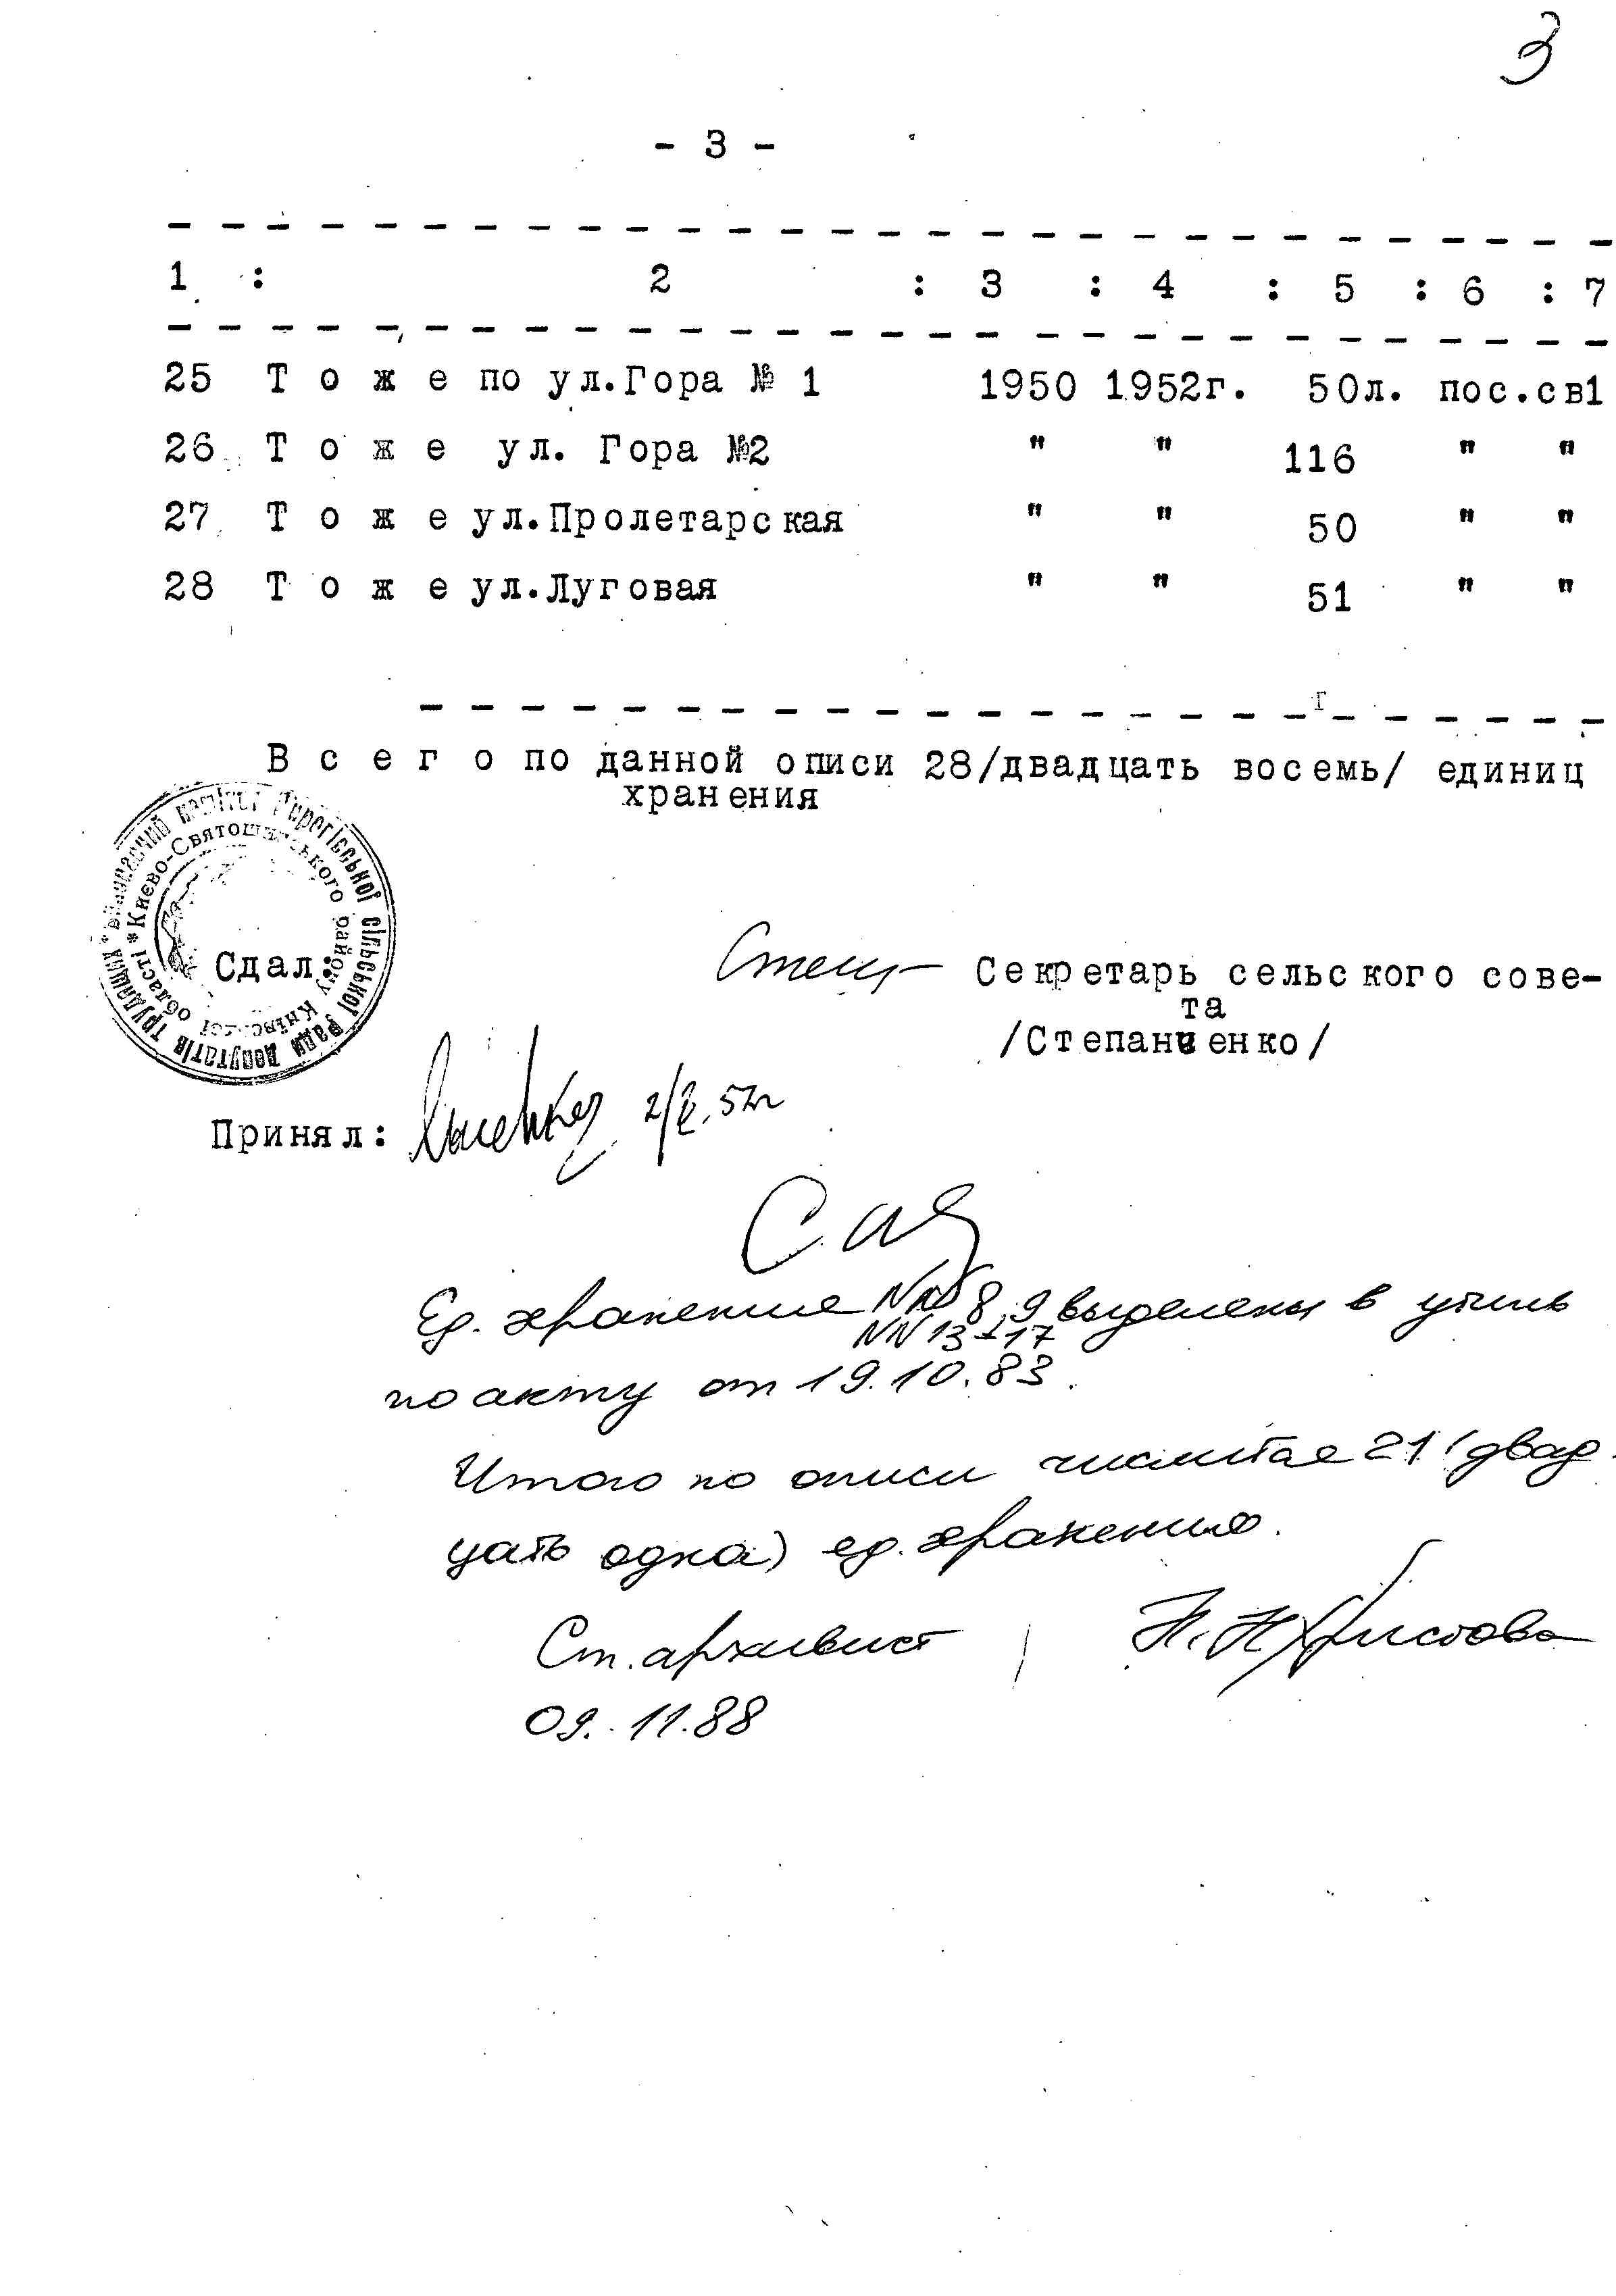 3
- 3 -
1 : 2 : 3 : 4 : 5 : 6 : 7
25 Т о ж е по ул.Гора № 1 1950 1952г. 50л. пос.св1
26 Т о ж е ул. Гора №2 " " 116 " "
27 Т о ж е ул.Пролетарская " " 50 " "
28 Т о ж е ул.Луговая " " 51 " "
В с е г о по данной описи 28/двадцать восемь/ единиц
хранения
Виконавчий комітет Пирогівської сільської Ради депутатів трудящих *
Києво-Святошинського району Київської області *
Сдал:
Секретарь сельского сове-
та
/Степанченко/
Принял: 52г
Ед. хранения NN 8, 9 выделены в утиль
NN 13-17
по акту от 19.10.83.
Итого по описи числится 21 (двад-
цать одна) ед. хранения.
Ст. архивист Н. Н. Христова
09.11.88